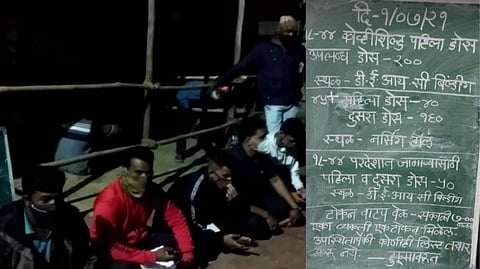 दि-१/०७/२१
१८-४४ कोव्हीशिल्ड पहिला डोस
उपलब्ध डोस - २००
स्थळ - डी.ई.आय.सी बिल्डींग
४५+ पहिला डोस - ४०
दुसरा डोस - १६०
स्थळ - नर्सिंग हॉल
१८-४४ परदेशात जाणाऱ्यासाठी
पहिला व दुसरा डोस - ५०
स्थळ - डी.ई.आय.सी बिल्डींग
टोकन वाटप वेळ - सकाळी ७:००
एका व्यक्ती एक टोकन मिळेल
उपस्थितांपैकी कोणीही लिस्ट तयार
करू नये. हुकुमावरून